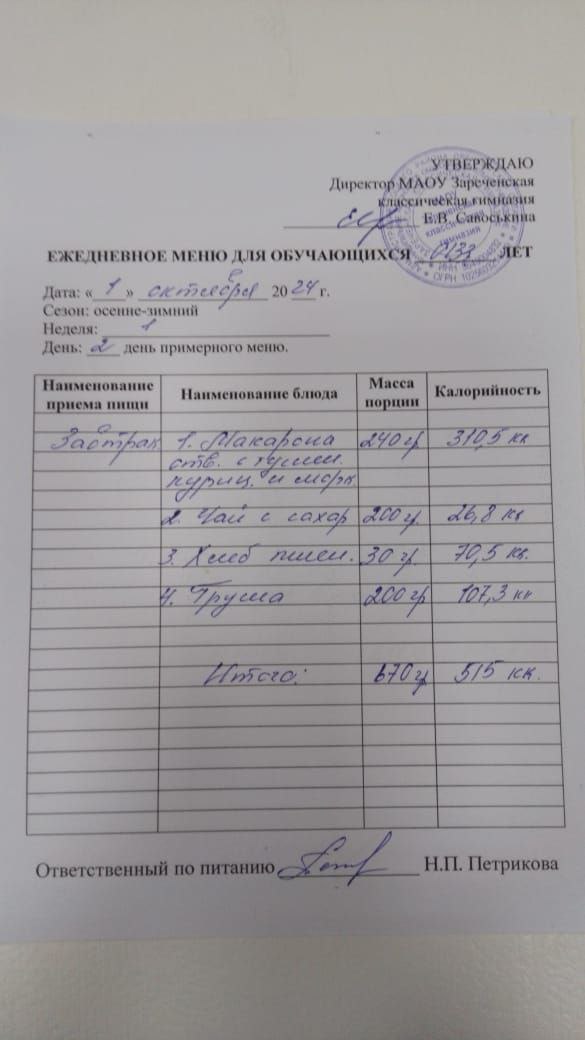 УТВЕРЖДАЮ
Директор МАОУ Зареченская
классическая гимназия
Е.В. Савоськина
ЕЖЕДНЕВНОЕ МЕНЮ ДЛЯ ОБУЧАЮЩИХСЯ ОВЗ ЛЕТ
Дата: « 1 » октября 20 24 г.
Сезон: осенне-зимний
Неделя: 1
День: 2 день примерного меню.
Наименование приема пищи Наименование блюда Масса порции Калорийность
Завтрак 1. Макароны 240 гр 310,5 кк
отв. с тушен.
куриц. и морк
2. Чай с сахар 200 гр 26,8 кк
3. Хлеб пшен. 30 гр. 70,5 кк.
4. Груша 200 гр 107,3 кк
Итого: 670 гр 515 кк.
Ответственный по питанию Н.П. Петрикова